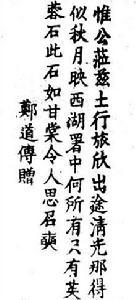 惟公莅茲土行旅欣出途清光那得
似秋月映西湖署中何所有只有芙
蓉石此石如甘棠令人思召奭
鄭道傳贈